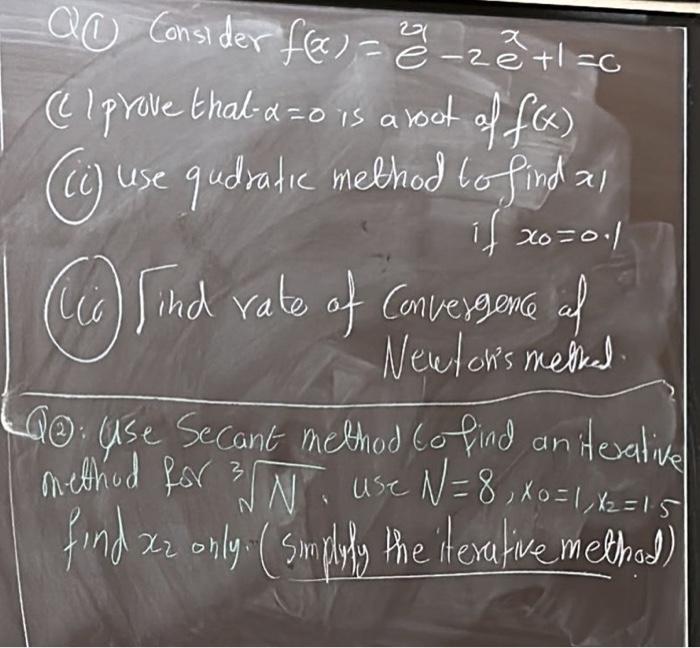 Q① Consider f(x) = e^2x - 2e^x + 1 = 0
(i) prove that α = 0 is a root of f(x)
(ii) use qudratic method to find x1
if x0 = 0.1
(iii) Find rate of Convergence of
Newton's method.
Q②: Use Secant method to find an iterative
method for ∛N. use N = 8, x0 = 1, x2 = 1.5
find x2 only. (simplyfy the iterative method)